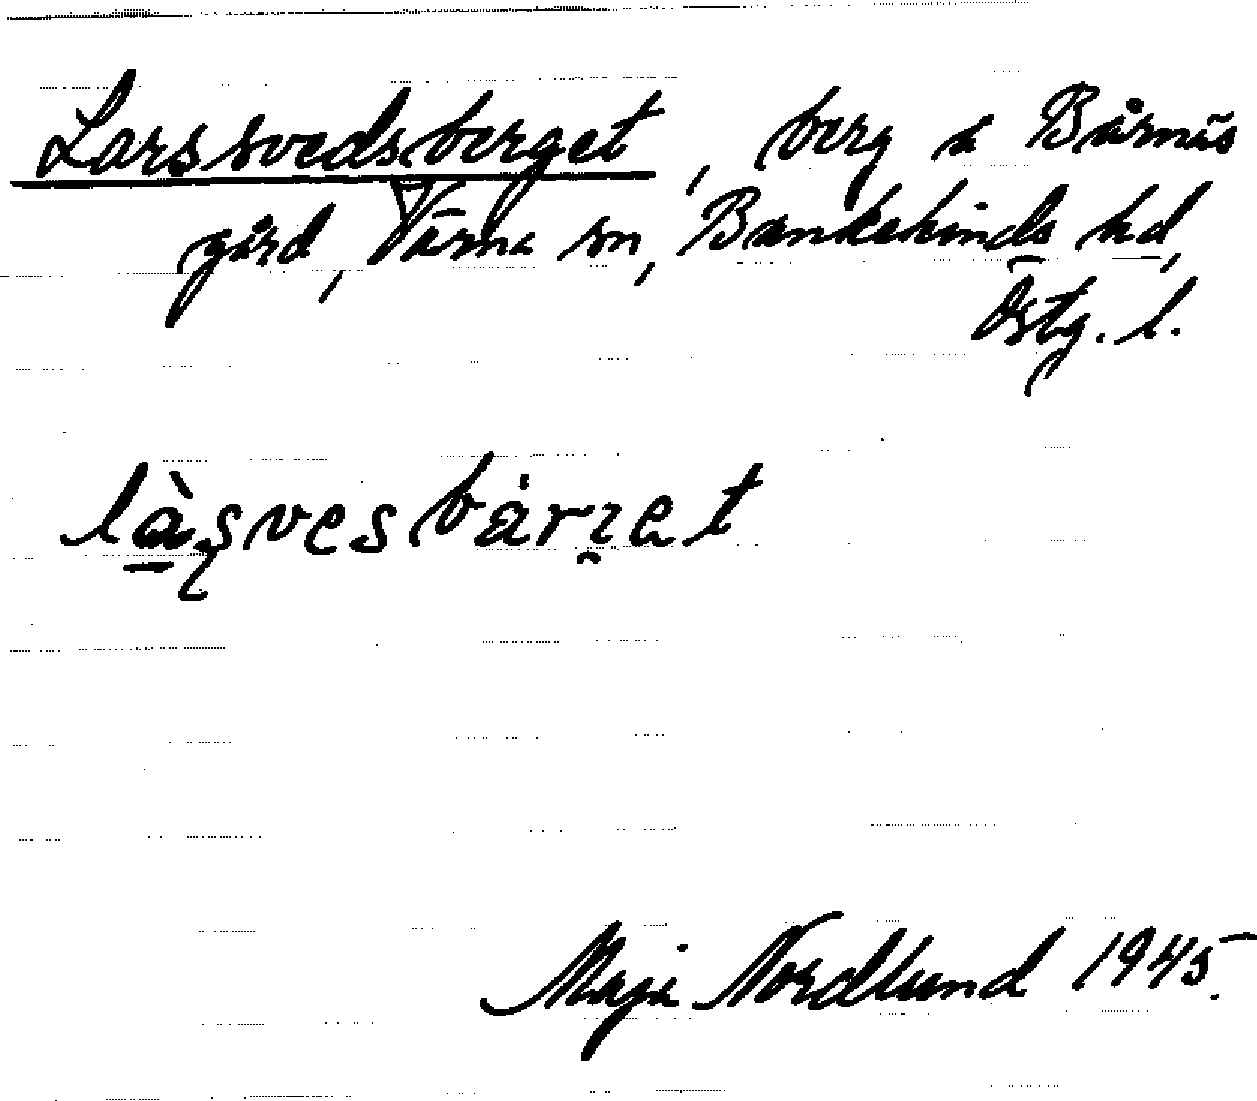 Larssvedsberget, berg å Bårnäs
gård, Värna sn, Bankekinds hd,
Östg. l.
làșvesbårɿet
Maja Nordlund 1945.